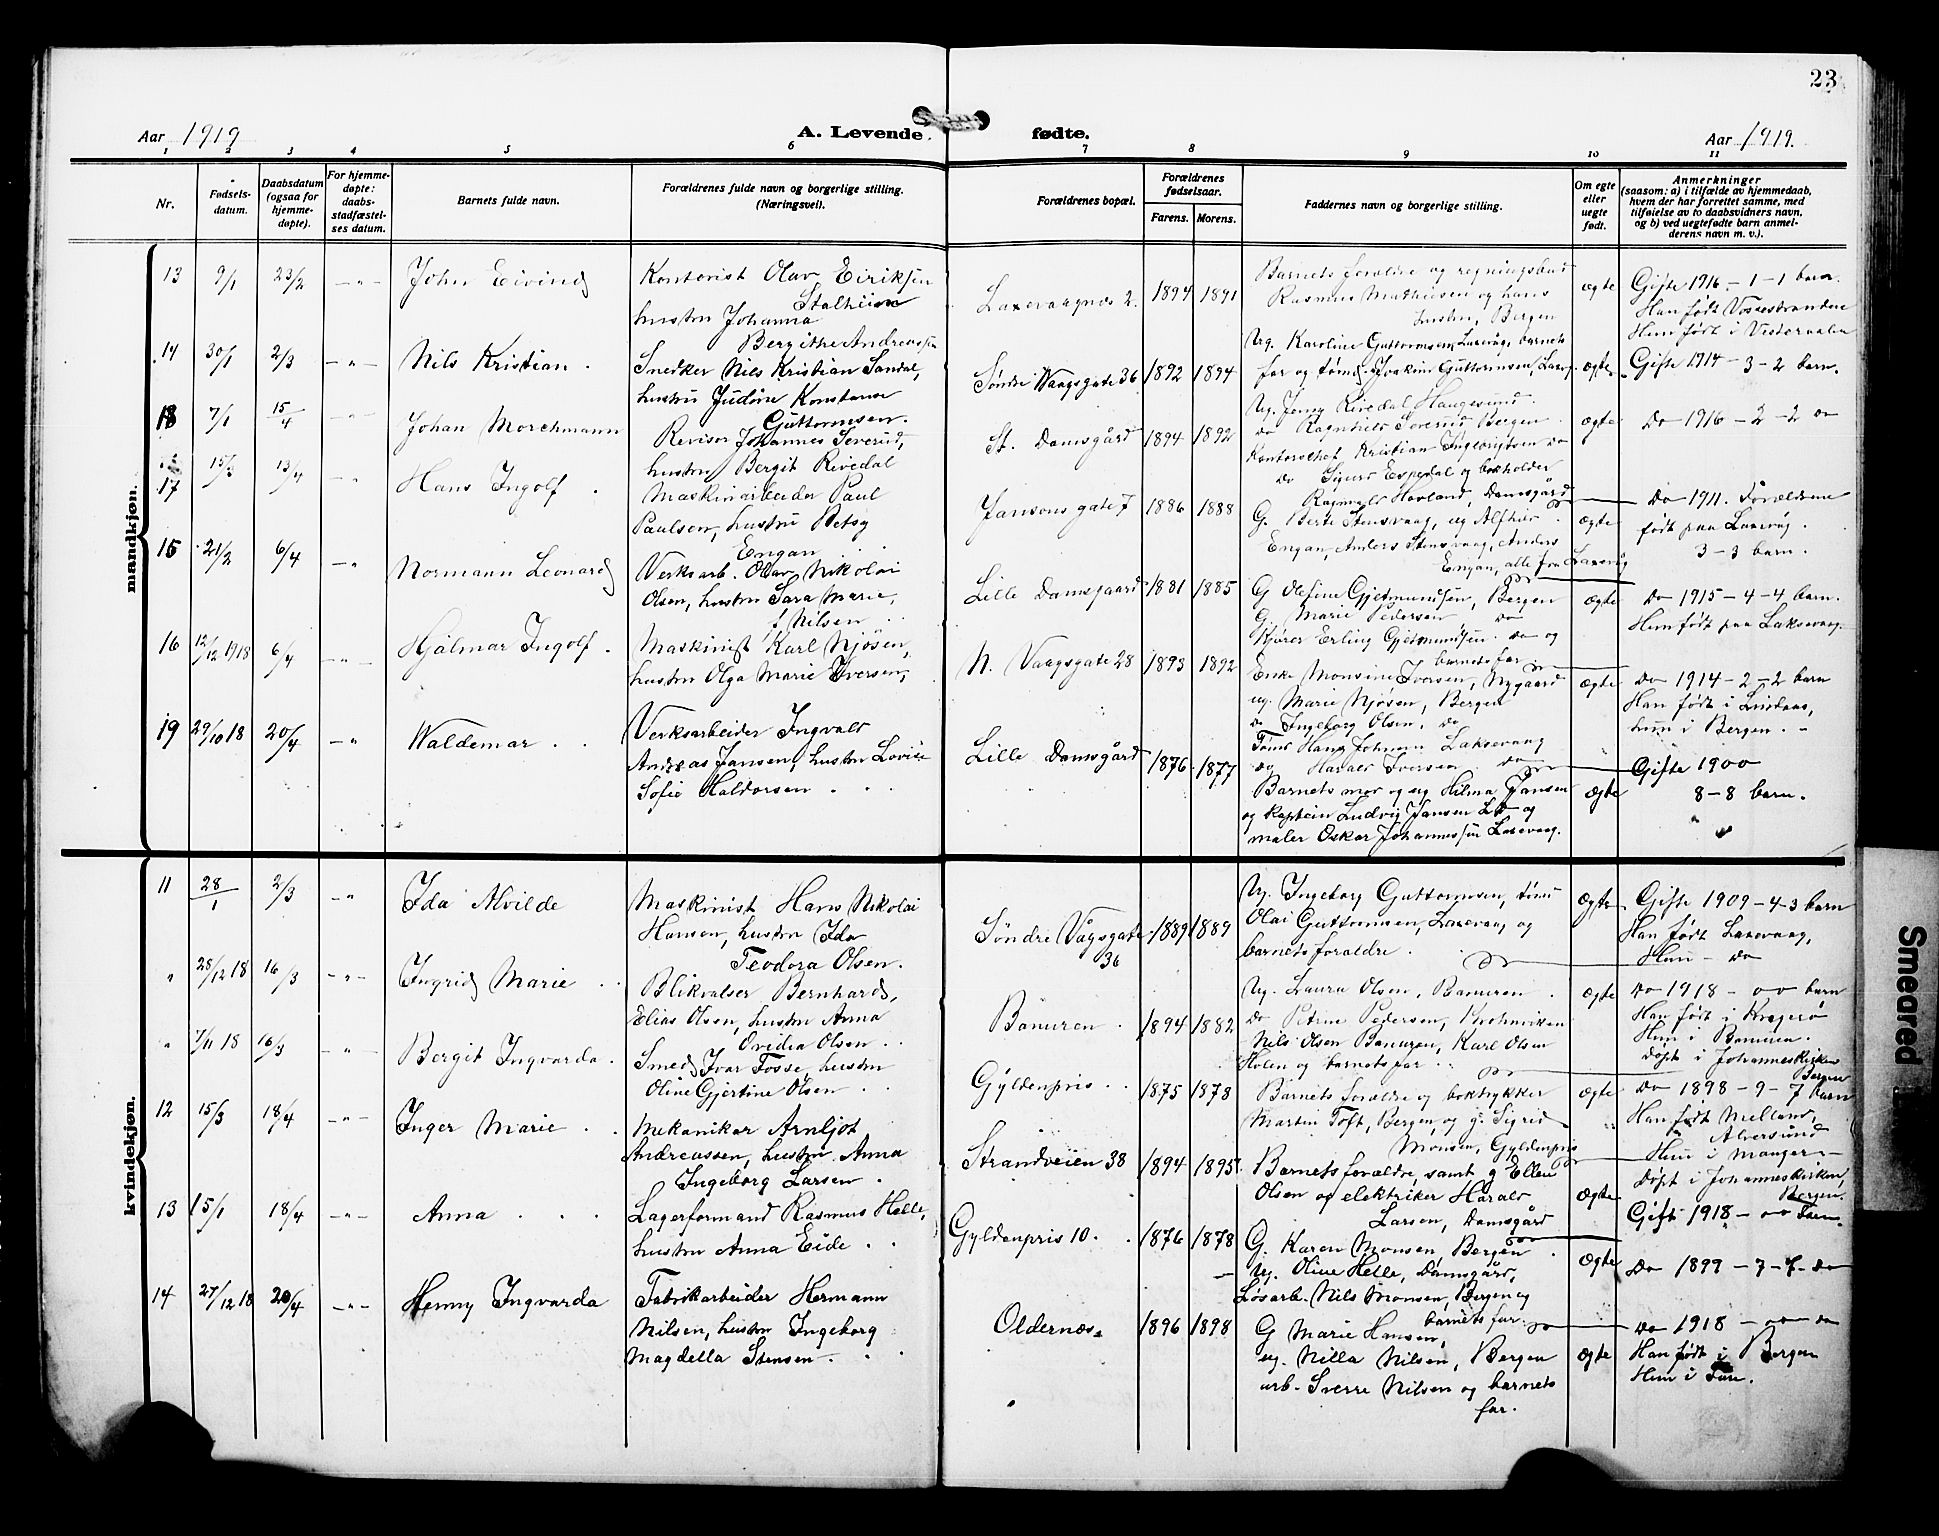 23
Aar 1919
A. Levende fødte.
Aar 1919.
1 2 3 4 5 6 7 8 9 10 11
Nr.
Fødsels-
datum.
Daabsdatum
(ogsaa for
hjemme-
døpte).
For hjemme-
døpte:
daabs-
stadfæstel-
ses datum.
Barnets fulde navn.
Forældrenes fulde navn og borgerlige stilling.
(Næringsvei).
Forældrenes bopæl.
Forældrenes
fødselsaar.
Farens. Morens.
Faddernes navn og borgerlige stilling.
Om egte
eller
uegte
født.
Anmerkninger
(saasom: a) i tilfælde av hjemmedaab,
hvem der har forrettet samme, med
tilføielse av to daabsvidners navn,
og b) ved uegtefødte barn anmel-
derens navn m. v.).
mandkjøn.
13 9/1 23/2 -"- John Eivind
Kontorist Olav Eiriksen
Stalheim
hustru Johanna
Bergithe Andreassen
Laxevaagnes 2. 1894 1891
Barnets foraldre og regningsbud
Rasmus Mathiesen og hans
hustru, Bergen
ægte
Gifte 1916 - 1 - 1 barn.
Han født Vossestranden
Hun født i Vesteraalen
14 30/1 2/3 -"- Nils Kristian .
Snedker Nils Kristian Sandal,
hustru Judine Konstanse
Guttormsen.
Søndre Vaagsgate 36 1892 1894
Ug. Karoline Guttormsen, Laxevåg, barnets
far og tømd. Joakim Guttormsen, Laxvg.
ægte
Gifte 1914 - 3 - 2 barn.
18 7/1 15/4 -"- Johan Morchmann
Revisor Johannes Severud,
hustru Bergit Rivedal
St. Damsgård 1894 1892
Ug. Jenny Rivedal, Haugesund
do Ragnhild Severud Bergen
Kontorchef Kristian Ingebrigtsen do
do Sigurd Espedal og bokholder
Ragnvald Hovland, Damsgård
ægte
Do 1916 - 2 - 2 do
17 15/3 13/4 -"- Hans Ingolf .
Maskinarbeider Paul
Paulsen, hustru Betsy
Engan
Jansons gate 7 1886 1888
G. Berte Stensvaag, ug Alfhir
Engan, Anders Stensvaag, Anders
Engan, alle fra Laxevåg
ægte
Do 1911. Foraldrene
født paa Laxevåg.
3 - 3 barn.
15 21/2 6/4 -"- Normann Leonard
Verksarb. Olav Nikolai
Olsen, hustru Sara Marie,
f. Nilsen
Lille Damsgaard 1881 1885
G Olefine Gjetmundsen, Bergen
G. Marie Pedersen do
Kjører Erling Gjetmundsen do og
barnets far
ægte
Do 1915 - 4 - 4 barn.
Hun født paa Laksevaag.
16 12/12 1918 6/4 -"- Hjalmar Ingolf .
Maskinist Karl Njøsen,
hustru Olga Marie Iversen,
N. Vaagsgate 28 1893 1892
Enke Monsine Iversen, Nygaard
ug. Marie Njøsen, Bergen
do Ingeborg Olsen, do
Tømd Hans Johnsen Laksevaag
og Harald Iversen do
ægte
Do 1914 - 2 - 2 barn
Han født i Lindaas,
hun i Bergen. -
19 29/10 18 20/4 -" Waldemar . .
Verksarbeider Ingvald
Andreas Jansen, hustru Lovise
Sofie Haldorsen . .
Lille Damsgård 1876 1877
Barnets mor og ug Hilma Jansen
og Kaptein Ludvig Jansen do og
maler Oskar Johannessen Laxevaag.
ægte
Gifte 1900
8 - 8 barn.
kvindekjøn.
11 28/1 2/3 -" Ida Alvilde
Maskinist Hans Nikolai
Hansen, hustru Ida
Teodora Olsen.
Søndre Vågsgate 36 1889 1889
Ug. Ingeborg Guttormsen, tømd
Olai Guttormsen, Laxevaag og
barnets foraldre .
ægte
Gifte 1909 - 4 - 3 barn
Han født Laxevaag,
Hun - do
" 28/12 18 16/3 -"- Ingrid Marie . .
Blikvalser Bernhard
Elias Olsen, hustru Anna
Ovidia Olsen . .
Bønuren . 1894 1882
Ug. Laura Olsen, Bønuren
do Petrine Pedersen,
Nils Olsen Bønuren, Karl Olsen
Holen og barnets far . .
ægte
Do 1918 - oo barn
Han født i Kragerø
Hun i Bønuren.
Døpt i Johanneskirken
Bergen
" 7/11 18 16/3 -"- Bergit Ingvarda .
Smed Ivar Fosse, hustru
Oline Gjertine Olsen
Gyldenpris . . 1875 1878
Barnets foraldre og boktrykker
Martin Toft, Bergen, og g. Sigrid
Monsen, Gyldenpris
ægte
Do 1898 - 9 - 7 barn
Han født Melland,
Alversund
Hun i Manger -
Døpt i Johanneskirken,
Bergen.
12 15/3 18/4 -"- Inger Marie . .
Mekaniker Arnljot
Andreassen, hustru Anna
Ingeborg Larsen .
Strandveien 38 1894 1895
Barnets foraldre, samt g Ellen
Olsen og elektriker Harald
Larsen, Damsgård
ægte
Gift 1918 - oo barn.
13 15/1 18/4 -"- Anna . . .
Lagerformand Rasmus Helle,
hustru Anna Eide . .
Gyldenpris 10. . 1876 1878
G. Karen Monsen, Bergen .
Ug. Oline Helle, Damsgård,
Løsarb. Nils Monsen, Bergen og
barnets far.
ægte
Do 1899 - 7 - 7 do
14 27/12 18 20/4 -"- Henny Ingvarda
Fabrikarbeider Hermann
Nilsen, hustru Ingeborg
Magdella Stensen . .
Oldernes. 1896 1898
G Marie Hansen,
ug. Nilla Nilsen, Bergen
arb. Sverre Nilsen og barnets
far.
ægte
Do 1918 - oo do
Han født i Bergen
Hun i Fane.
Smeared